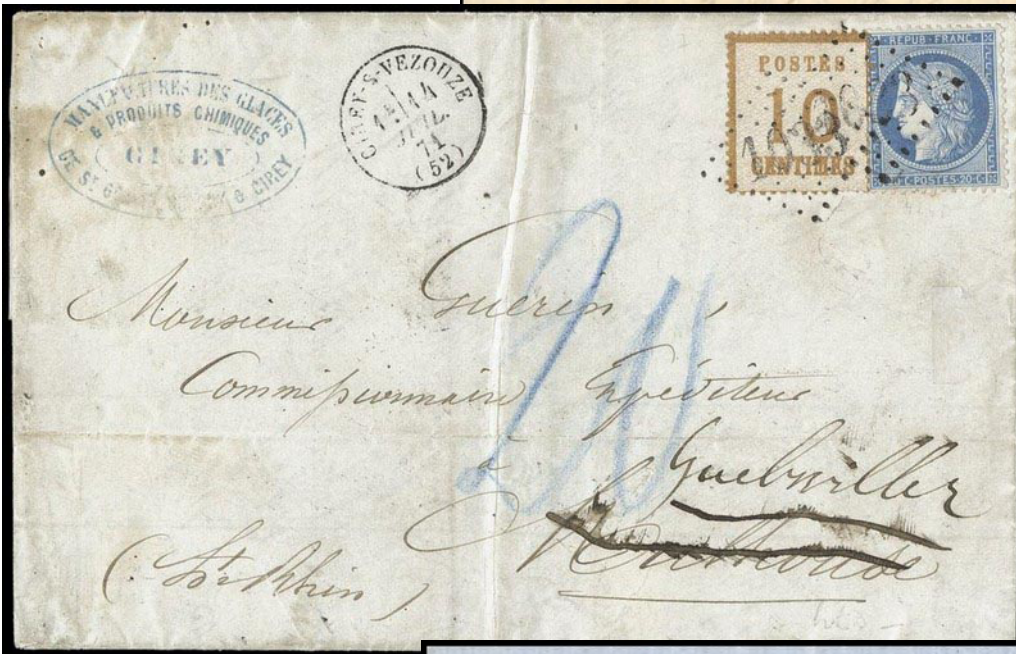 MANUFACTURES DES GLACES
& PRODUITS CHIMIQUES
CIREY
DE ST G
& CIREY
CIREY-S-VEZOUZE
14
JUIL.
71
(52)
POSTES
10
CENTIMES
REPUB. FRANC.
POSTES·20·C
20
Monsieur Guerin,
Commissionnaire Expéditeur
à Guebwiller
Mulhouse
(Ht Rhin)